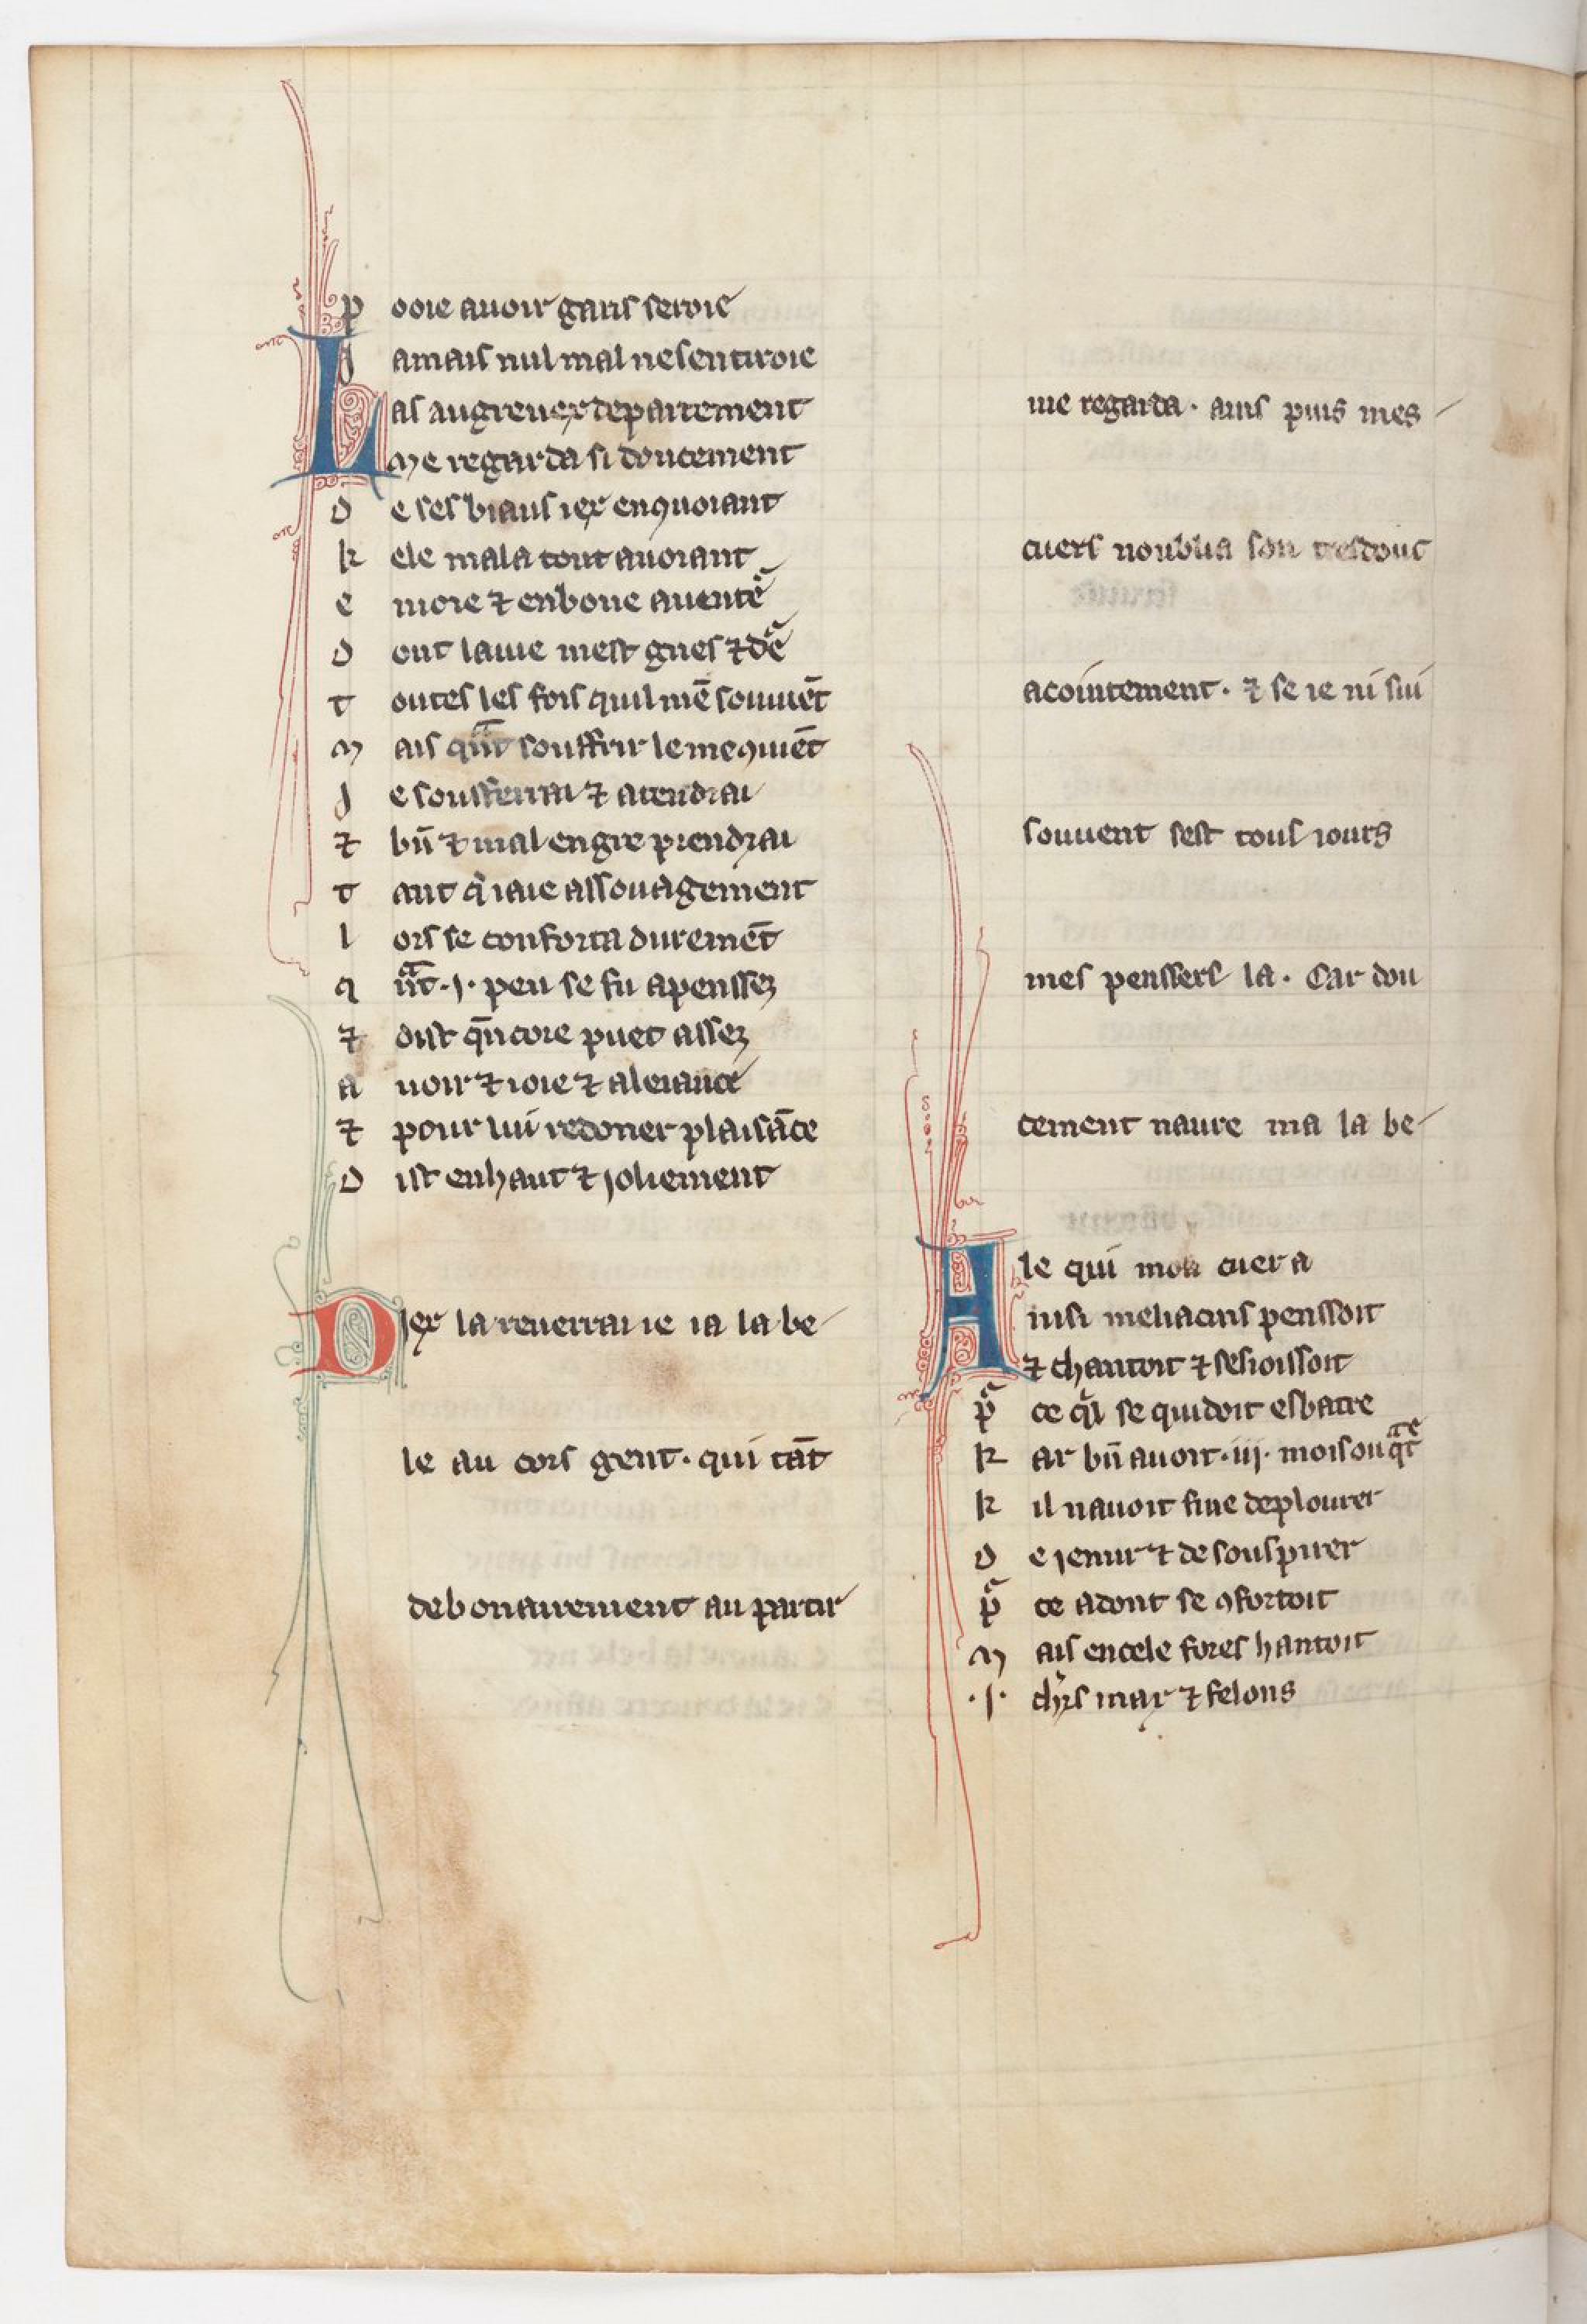 p ooie auoir garis seroie
J amais nul mal ne sentiroie
Las au greuex departement
me regarda si doucement
d e ses biaus iex en qͻoiant
k ele mala tout auoiant
e moie ⁊ en bone auent̾e
d ont la uie mest gries ⁊ dẽ
t outes les fois quil mẽ souuiẽt
m ais qᵃnt souffrir le me ꝯuiẽt
J e soufferrai ⁊ atendrai
⁊ bñ ⁊ mal en gre prendrai
t ant q̇ iaie assouagement
l ors se conforta duremẽt
q ᵃnt .j. peu se fu apenssez
⁊ dist q̃ncore puet assez
a uoir ⁊ ioie ⁊ aleiance
⁊ pour lui redoner plaisãce
d ist en haut ⁊ joliement
Diex la reuerrai ie ia la be
le au cors gent. qui tãt
debonairement au partir
me regarda. ains puis mes
cuers noublia son tresdouc
acointement. ⁊ se ie ni sui
souuent sest tous iours
mes penssers la. Car dou
cement naure ma la be
le qui mon cuer a
Ainsi meliacins penssoit
⁊ chantoit ⁊ sesioissoit
p̾ ce qͥl se quidoit esbatre
k ar bñ auoit .iij. mois ou qᵃtᵉ
k il nauoit fine de plourer
d e jemir ⁊ de souspirer
p̾ ce adont se ꝯfortoit
m ais en cele fores hantoit
.j. chr̃s max ⁊ felons